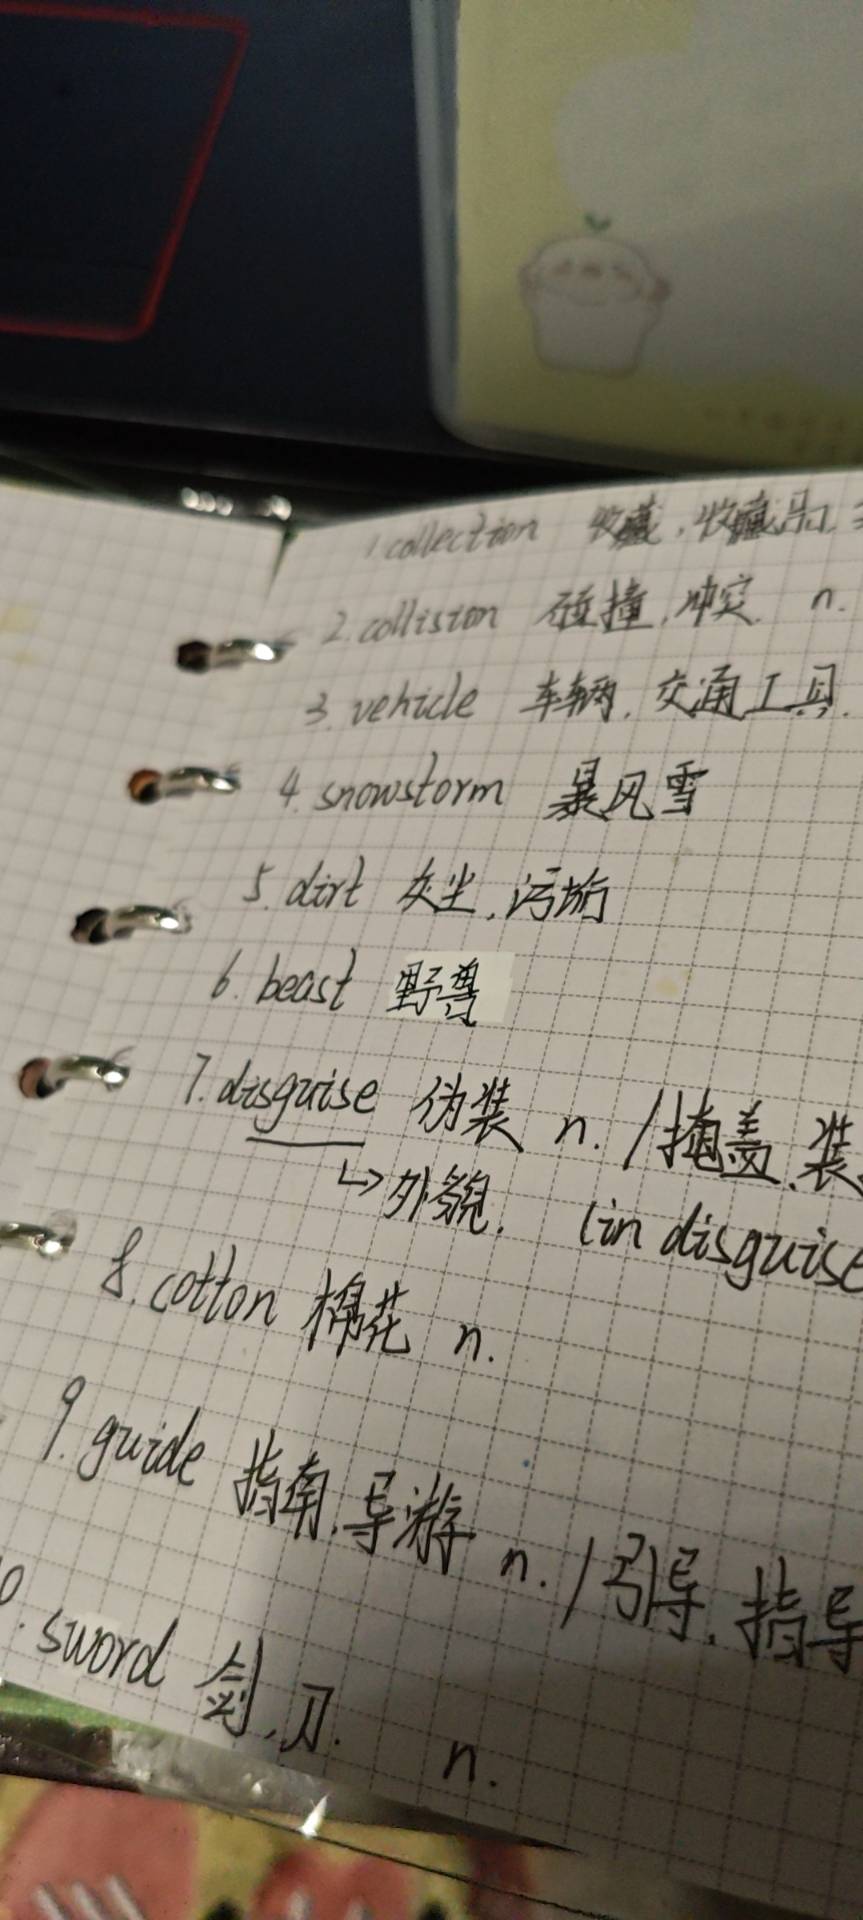 1.collection 收藏,收藏品,
2.collision 碰撞,冲突. n.
3.vehicle 车辆,交通工具.
4.snowstorm 暴风雪
5.dirt 灰尘,污垢
6.beast 野兽
7.disguise 伪装 n./掩盖,装
↳外貌. (in disguise
8.cotton 棉花 n.
9.guide 指南,导游 n./引导,指导
0.sword 剑,刀. n.